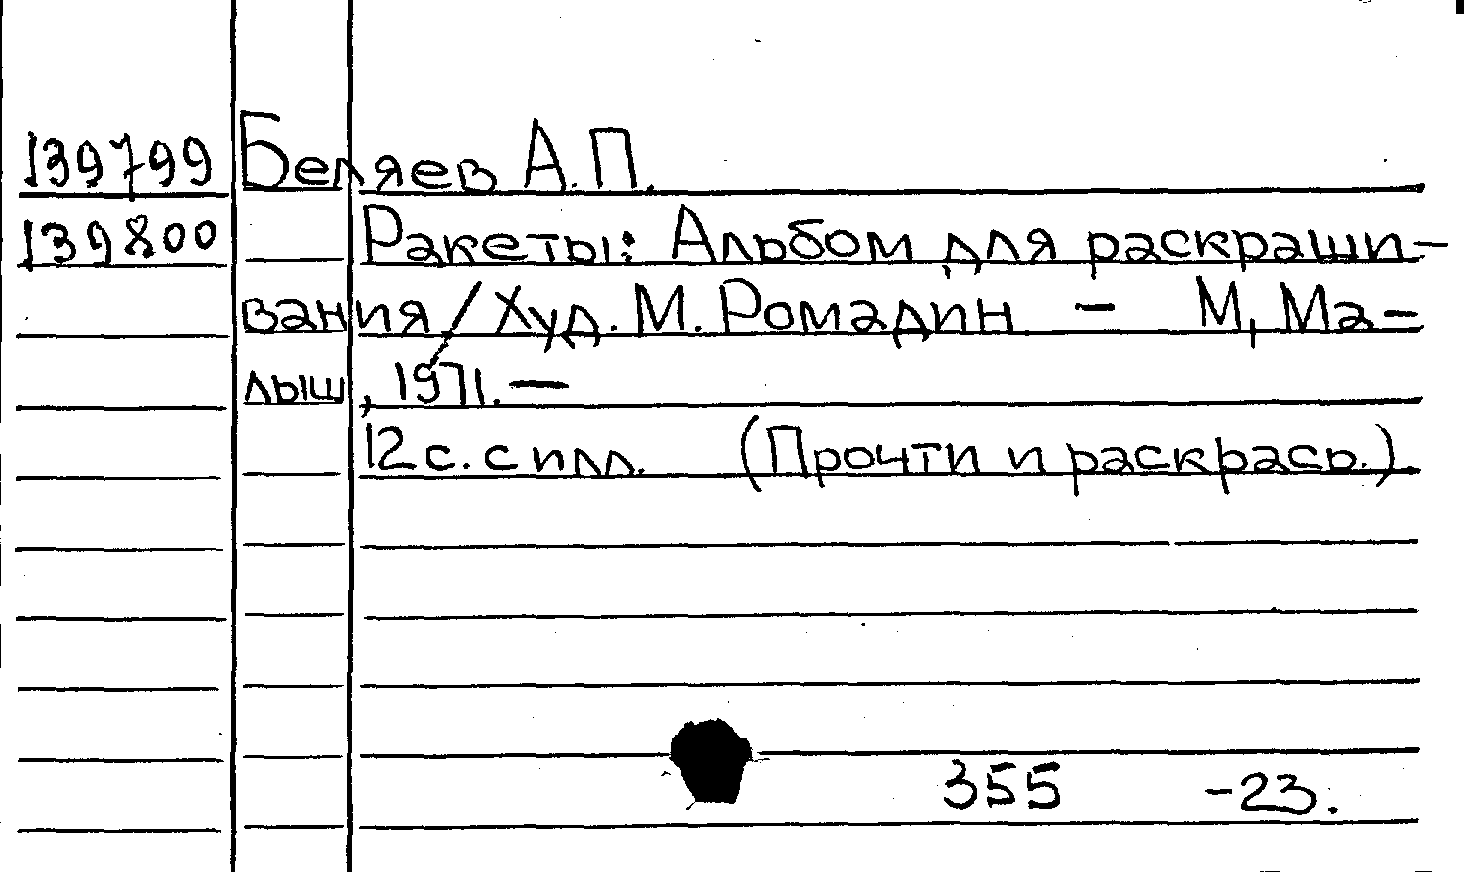 139799 Беляев А.П.
139800 Ракеты: Альбом для раскраши-
вания/Худ. М. Ромадин – М, Ма-
лыш, 1971. —
12 с. с илл. (Прочти и раскрась.)
355 -23.